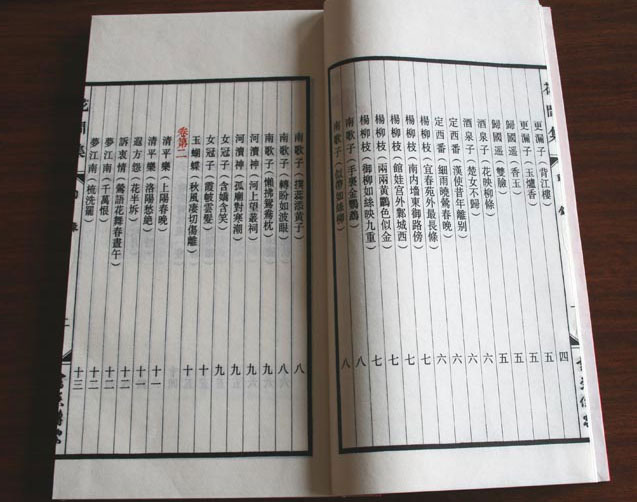 更漏子(背江樓) 四
更漏子(玉爐香) 五
歸國遥(香玉) 五
歸國遥(雙臉) 五
酒泉子(花映柳條) 五
酒泉子(楚女不歸) 六
定西番(漢使昔年離別) 六
定西番(細雨曉鶯春晚) 六
楊柳枝(宜春苑外最長條) 六
楊柳枝(南内墻東御路傍) 七
楊柳枝(館娃宫外鄴城西) 七
楊柳枝(兩兩黄鸝色似金) 七
楊柳枝(御柳如絲映九重) 七
南歌子(手裏金鸚鵡) 八
南歌子(似帶如絲柳) 八
南歌子(撲蕊添黄子) 八
南歌子(轉盼如波眼) 八
南歌子(懶拂鴛鴦枕) 九
河瀆神(河上望叢祠) 九
河瀆神(孤廟對寒潮) 九
女冠子(含嬌含笑) 九
女冠子(霞帔雲髮) 十
玉蝴蝶(秋風凄切傷離) 十
卷第二
清平樂(上陽春晚) 十一
清平樂(洛陽愁絶) 十一
遐方怨(花半坼) 十二
訴衷情(鶯語花舞春晝午) 十二
夢江南(千萬恨) 十二
夢江南(梳洗罷) 十三
花間集